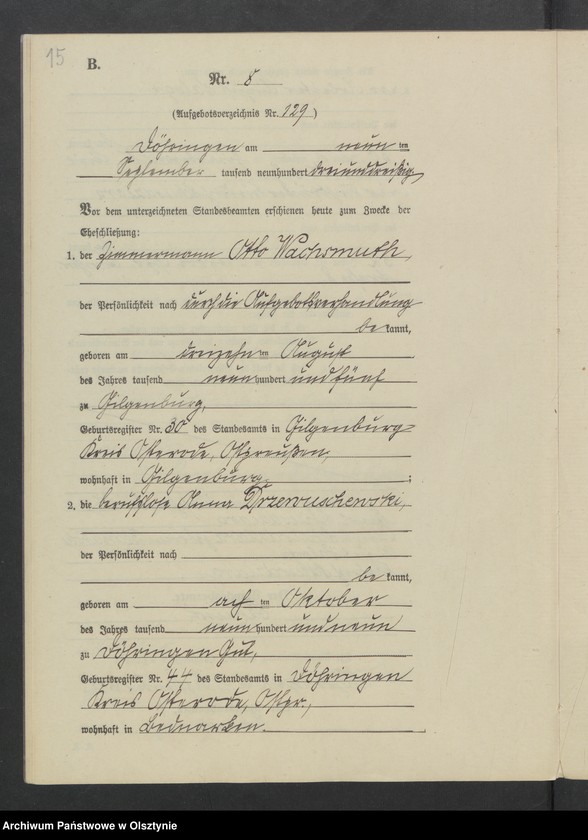 15
B.
Nr. 8
(Aufgebotsverzeichnis Nr. 129)
Döhringen am neun ten
September tausend neunhundert dreiunddreißig
Vor dem unterzeichneten Standesbeamten erschienen heute zum Zwecke der
Eheschließung:
1. der Zimmermann Otto Wachsmuth,
der Persönlichkeit nach durch die Aufgebotsverhandlung
be kannt,
geboren am dreizehn ten August
des Jahres tausend neun hundert und fünf
zu Gilgenburg,
Geburtsregister Nr. 30 des Standesamts in Gilgenburg
Kreis Osterode, Ostpreußen,
wohnhaft in Gilgenburg ;
2. die berufslose Anna Drzewuschewski,
der Persönlichkeit nach
be kannt,
geboren am ach ten Oktober
des Jahres tausend neun hundert und neun
zu Döhringen Gut,
Geburtsregister Nr. 44 des Standesamts in Döhringen
Kreis Osterode, Ostpr.,
wohnhaft in Bednarken.
Archiwum Państwowe w Olsztynie